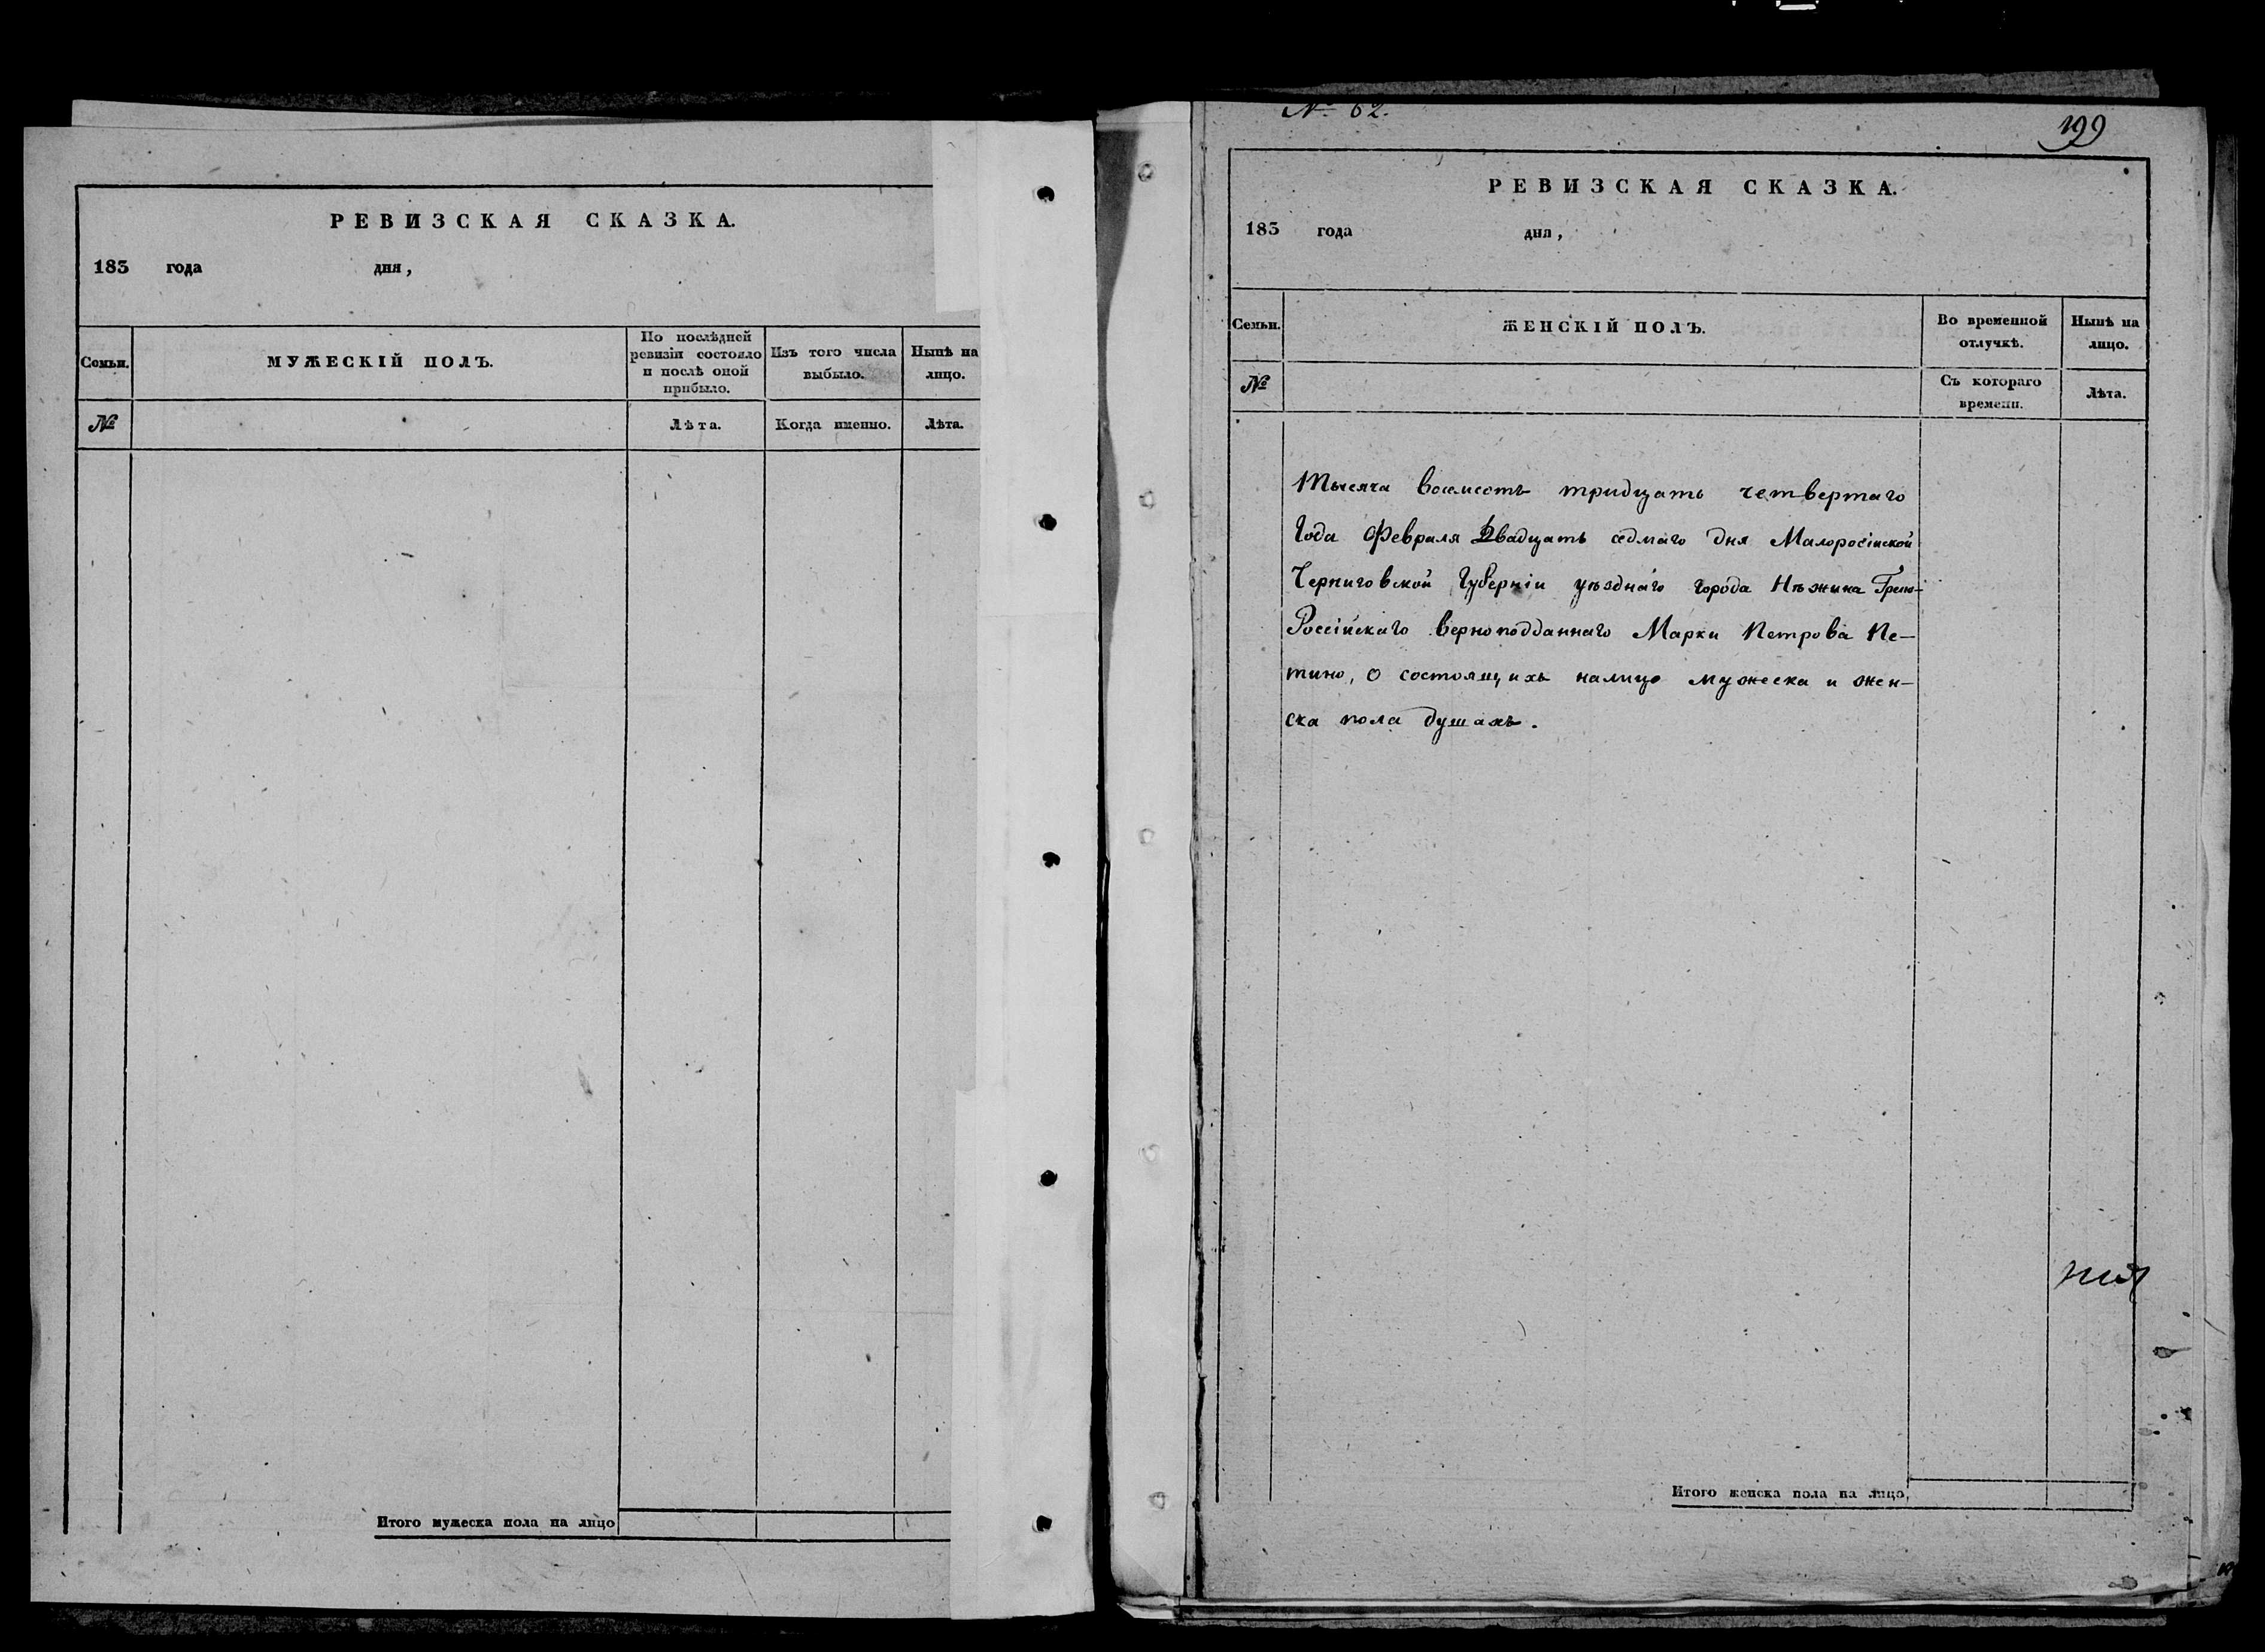 РЕВИЗСКАЯ СКАЗКА.
183 года дня,
Семьи.
МУЖЕСКІЙ ПОЛЪ.
По послѣдней ревизіи состояло и послѣ оной прибыло.
Изъ того числа выбыло.
Нынѣ на лицо.
№
Лѣта.
Когда именно.
Лѣта.
Итого мужеска пола на лицо
№ 62.
199
РЕВИЗСКАЯ СКАЗКА.
183 года дня,
Семьи.
ЖЕНСКІЙ ПОЛЪ.
Во временной отлучкѣ.
Нынѣ на лицо.
№
Съ котораго времени.
Лѣта.
Тысяча восемсотъ тридцать четвертаго
Года Февраля Двадцать седмаго дня Малоросійской
Черниговской Губерніи уѣзднаго города Нѣжина Греко-
Россійскаго верноподданнаго Марки Петрова Пе-
тино, о состоящихъ налицо мужеска и жен-
ска пола душахъ.
Итого женска пола на лицо,